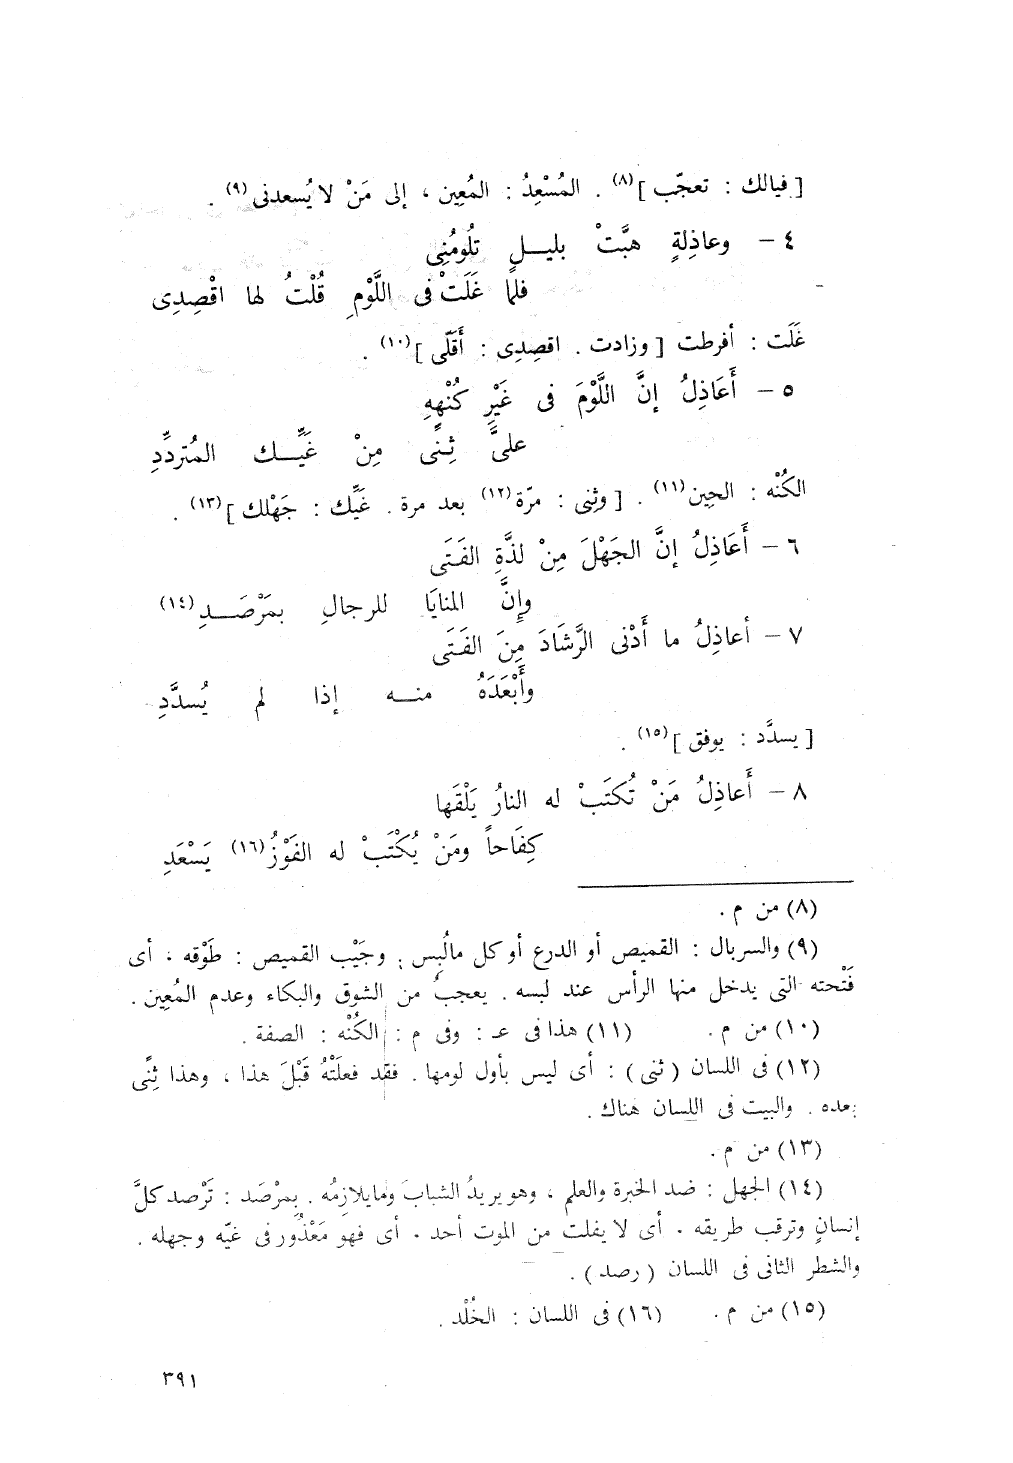 [ فيالك : تعجّب ](٨) . المُسْعِدُ : المُعِين ، إلى مَنْ لا يُسعدنى(٩) .
٤ – وعاذِلةٍ هبَّتْ بليـــلٍ تلُومُنِى
فلمَّا غَلَتْ فى اللَّوْمِ قُلْتُ لها اقْصِدِى
غَلَت : أفرطت [ وزادت . اقصِدِى : أَقَلّى ](١٠) .
٥ – أَعَاذِلُ إنَّ اللَّوْمَ فى غَيْرِ كُنْهِهِ
علىَّ ثِنًى مِنْ غَيِّــك المُتردِّدِ
الكُنْه : الحِين(١١) . [ وثِنِى : مرّة(١٢) بعد مرة . غَيِّك : جَهْلك ](١٣) .
٦ – أَعَاذِلُ إنَّ الجَهْلَ مِنْ لذَّةِ الفَتَى
وإِنَّ المنايَا للرجالِ بمَرْصَـــدِ(١٤)
٧ – أعاذِلُ ما أَدْنى الرَّشَادَ مِنَ الفَتَى
وأَبْعَدَهُ منـــه إذا لم يُسدَّدِ
[ يسدَّد : يوفق ](١٥) .
٨ – أَعاذِلُ مَنْ تُكتَبْ له النارُ يَلْقَها
كِفَاحاً ومَنْ يُكْتَبْ له الفَوْزُ(١٦) يَسْعَدِ
(٨) من م .
(٩) والسربال : القميص أو الدرع أو كل مالُبِس . وجَيْب القميص : طَوْقه ، أى
فَتْحته التى يدخل منها الرأس عند لبسه . يعجبُ من الشوق والبكاء وعدم المُعِين .
(١٠) من م . (١١) هذا فى عـ : وفى م : الكُنْه : الصفة .
(١٢) فى اللسان ( ثنى ) : أى ليس بأول لومها . فقد فعلَتْهُ قَبْلَ هذا ، وهذا ثِنًى
بعده . والبيت فى اللسان هناك .
(١٣) من م .
(١٤) الجهل : ضد الخبرة والعلم ، وهو يريدُ الشبابَ وما يلازِمُه . بِمرْصَد : تَرْصد كلَّ
إنسانٍ وترقب طريقه . أى لا يفلت من الموت أحد . أى فهو مَعْذُور فى غيّه وجهله .
والشطر الثانى فى اللسان ( رصد ) .
(١٥) من م . (١٦) فى اللسان : الخُلْد .
٣٩١